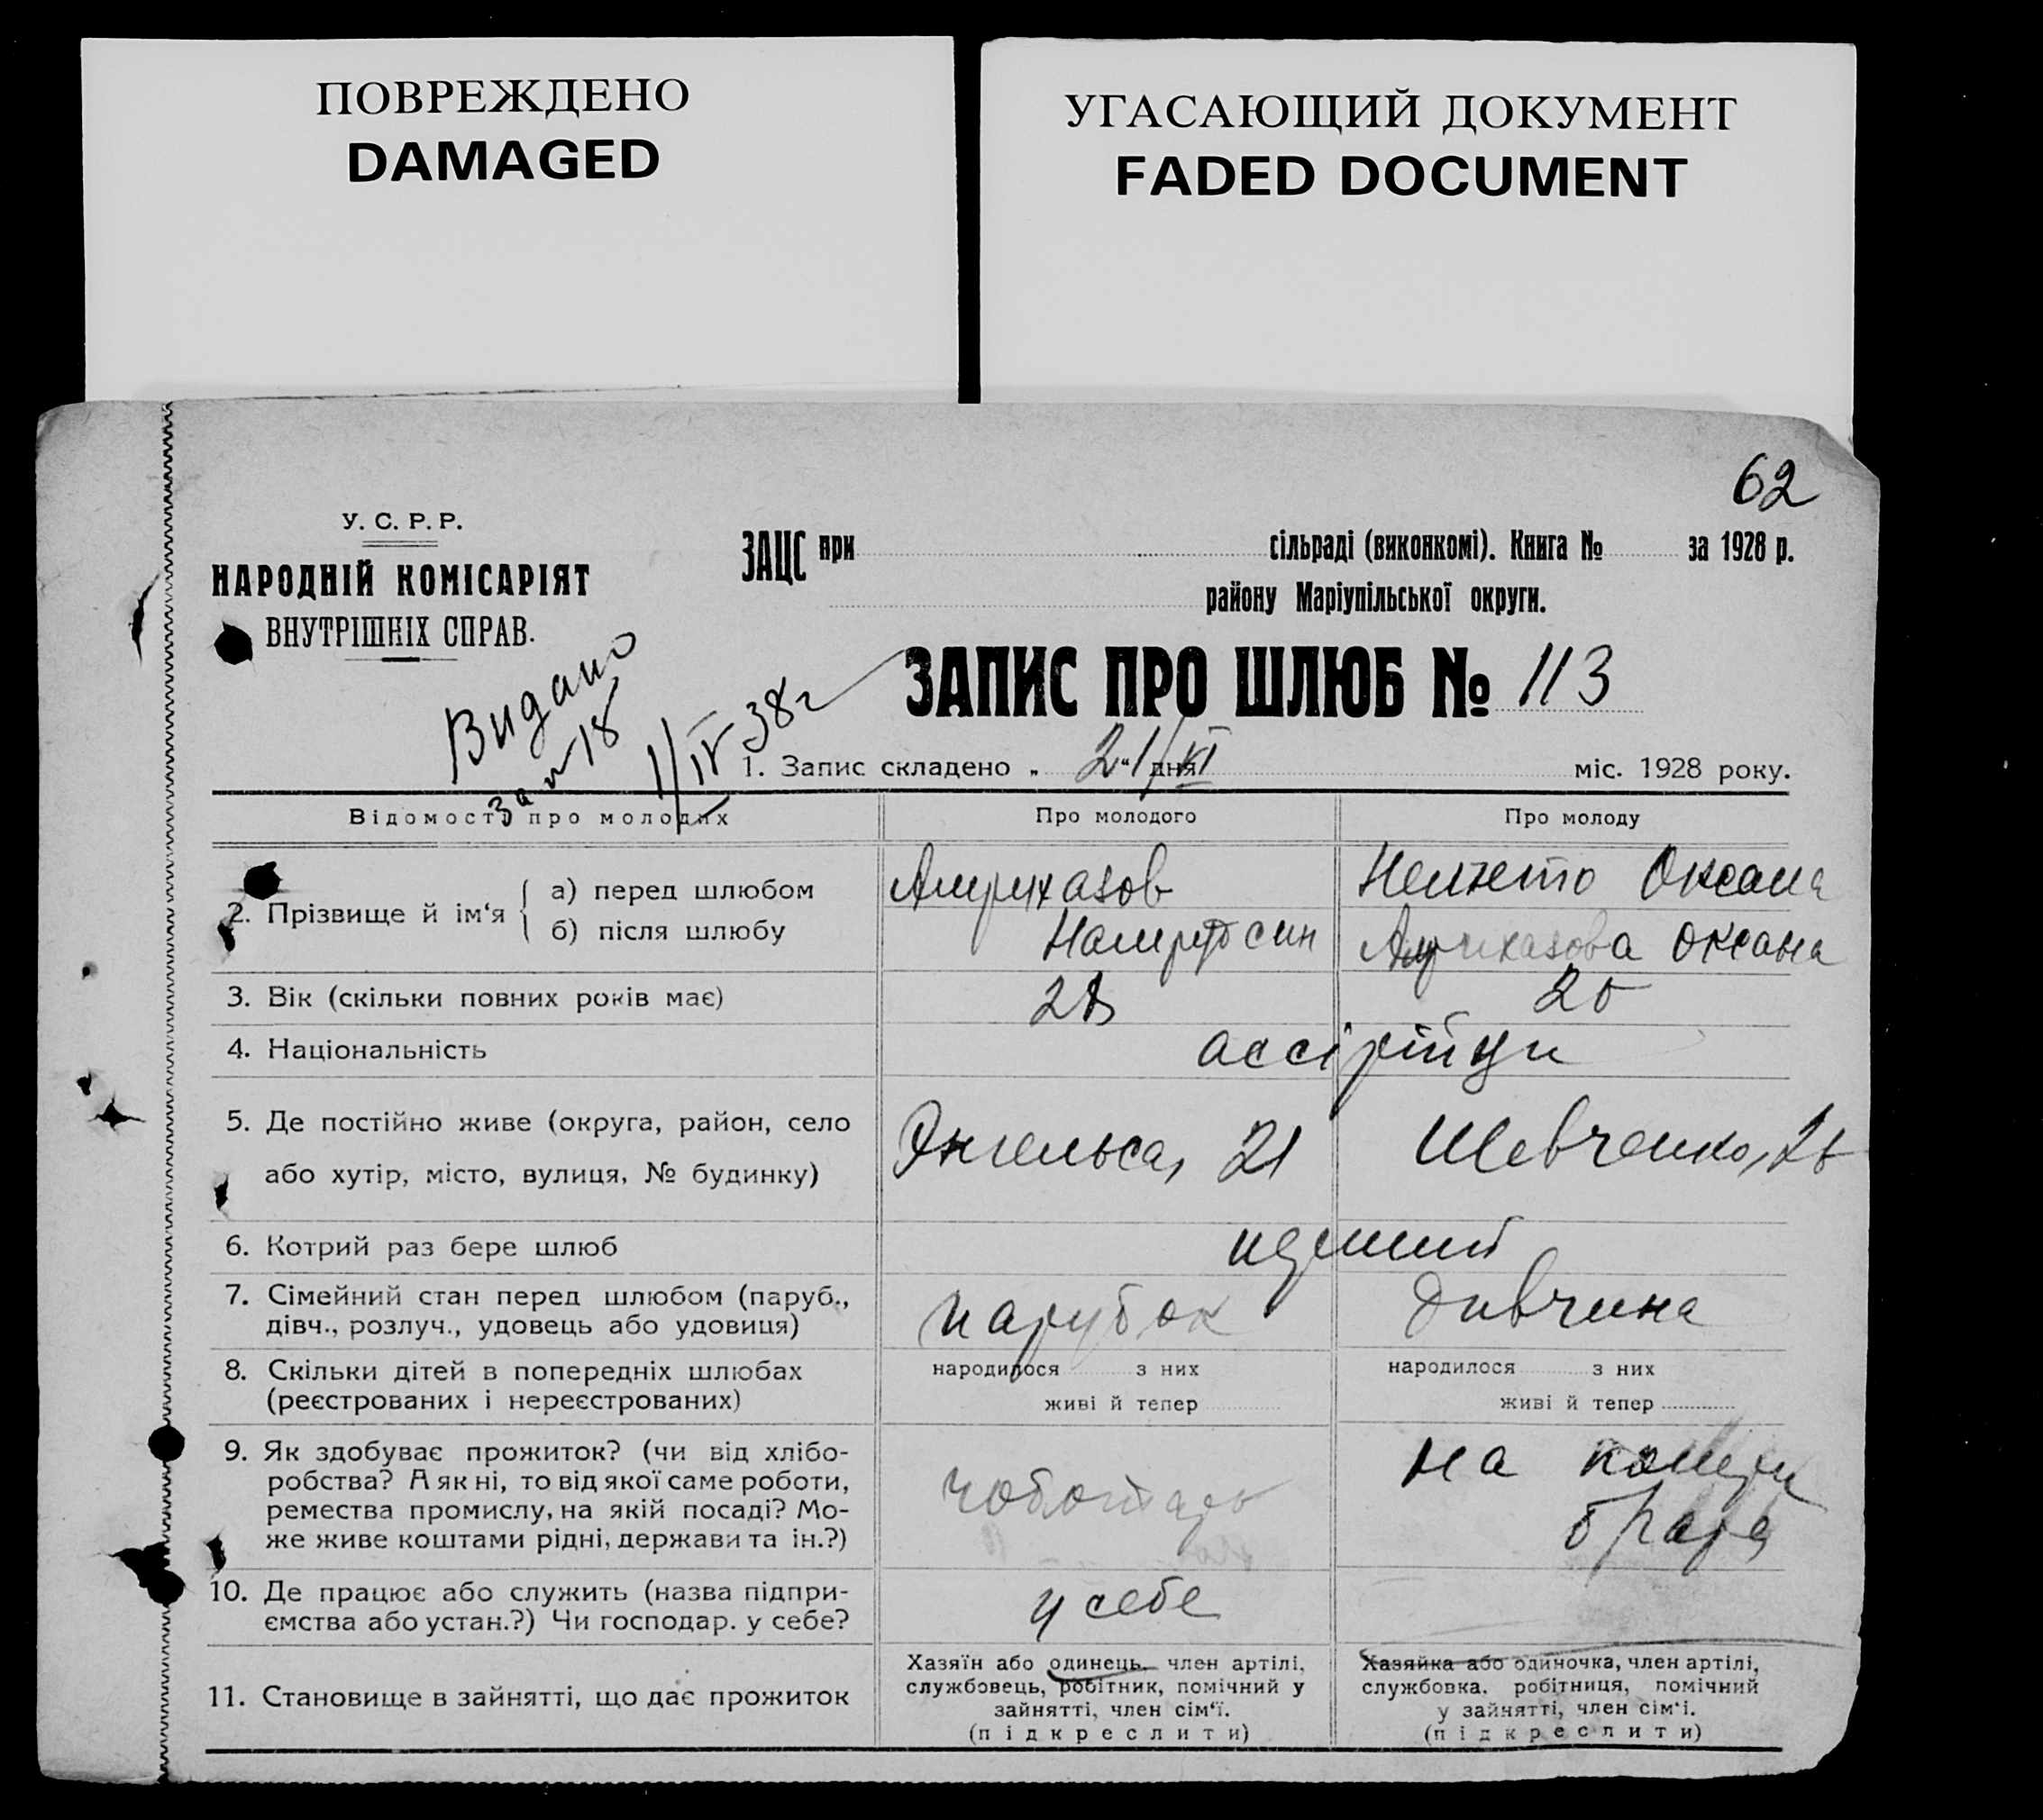 ПОВРЕЖДЕНО
DAMAGED
УГАСАЮЩИЙ ДОКУМЕНТ
FADED DOCUMENT
62
У. С. Р. Р.
НАРОДНІЙ КОМІСАРІЯТ
ВНУТРІШНІХ СПРАВ.
ЗАЦС при сільраді (виконкомі). Книга № за 1928 р.
району Маріупільської округи.
Видано
за № 18
1/IV 38 г
ЗАПИС ПРО ШЛЮБ № 113
1. Запис складено „ 21 “ дня VI міс. 1928 року.
Відомості про молодих
Про молодого
Про молоду
2. Прізвище й ім‘я
а) перед шлюбом
б) після шлюбу
Оксана
Оксана
3. Вік (скільки повних років має)
4. Національність
ассірійци
5. Де постійно живе (округа, район, село
або хутір, місто, вулиця, № будинку)
Энгельса, 21
Шевченко,
6. Котрий раз бере шлюб
7. Сімейний стан перед шлюбом (паруб.,
дівч., розлуч., удовець або удовиця)
парубок
дивчина
8. Скільки дітей в попередніх шлюбах
(реєстрованих і нереєстрованих)
народилося з них
живі й тепер
народилося з них
живі й тепер
9. Як здобуває прожиток? (чи від хлібо-
робства? А як ні, то від якої саме роботи,
ремества промислу, на якій посаді? Мо-
же живе коштами рідні, держави та ін.?)
чоботарь
на кошти
брата
10. Де працює або служить (назва підпри-
ємства або устан.?) Чи господар. у себе?
у себе
11. Становище в зайнятті, що дає прожиток
Хазяїн або одинець, член артілі,
службовець, робітник, помічний у
зайнятті, член сім‘ї.
(підкреслити)
Хазяйка або одиночка, член артілі,
службовка, робітниця, помічний
у зайнятті, член сім‘ї.
(підкреслити)